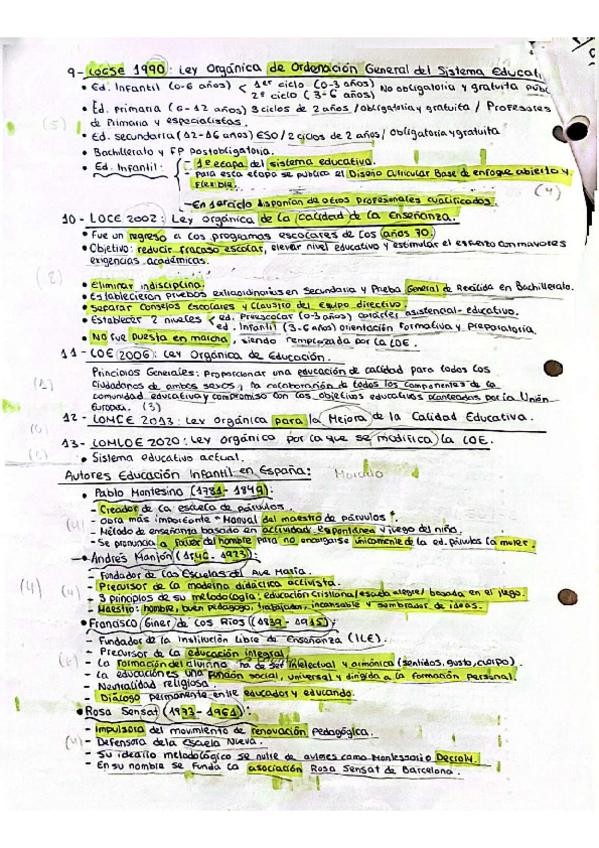 9- LOGSE 1990: Ley Orgánica de Ordenación General del Sistema Educati
• Ed. Infantil (0-6 años) < 1er ciclo (0-3 años) No obligatoria y gratuita públ
2º ciclo (3-6 años)
• Ed. Primaria (6-12 años) 3 ciclos de 2 años / obligatoria y gratuita / Profesores
de Primaria y especialistas.
(5)
• Ed. secundaria (12-16 años) ESO / 2 ciclos de 2 años / obligatoria y gratuita
• Bachillerato y FP Postobligatoria.
• Ed. Infantil: - 1ª etapa del sistema educativo.
- Para esta etapa se publica el Diseño Curricular Base de enfoque abierto y
flexible.
(4)
- En 1er ciclo disponían de otros profesionales cualificados.
10- LOCE 2002: Ley orgánica de la Calidad de la Enseñanza.
• Fue un regreso a los programas escolares de los años 70.
• Objetivo: reducir fracaso escolar, elevar nivel educativo y estimular el esfuerzo con mayores
exigencias académicas.
(8)
• Eliminar indisciplina.
• Establecieron pruebas extraordinarias en Secundaria y Prueba General de Reválida en Bachillerato.
• Separar Consejos Escolares y Claustro del equipo directivo.
• Establecer 2 niveles < ed. Preescolar (0-3 años) carácter asistencial-educativo.
ed. Infantil (3-6 años) orientación formativa y preparatoria.
• No fue puesta en marcha, siendo remplazada por la LOE.
11- LOE 2006: Ley Orgánica de Educación.
Principios Generales: Proporcionar una educación de calidad para todos los
ciudadanos de ambos sexos, la colaboración de todos los componentes de la
comunidad educativa y compromiso con los objetivos educativos planteados por la Unión
Europea. (3)
12- LOMCE 2013: Ley orgánica para la Mejora de la Calidad Educativa.
13- LOMLOE 2020: Ley orgánica por la que se modifica la LOE.
• Sistema educativo actual.
Autores Educación Infantil en España:
• Pablo Montesino (1781-1849):
- Creador de la escuela de párvulos.
(4)
- Obra más importante "Manual del maestro de párvulos".
- Método de enseñanza basado en actividad espontánea y juego del niño.
- Se pronuncia a favor del hombre para no encargarse únicamente de la ed. párvulos la mujer.
• Andrés Manjón (1846-1923):
- Fundador de las Escuelas del Ave María.
(4) (4)
- Precursor de la moderna didáctica activista.
- 3 principios de su metodología: educación Cristiana / escuela alegre / basada en el juego.
- Maestro: hombre, buen pedagogo, trabajador, incansable y sembrador de ideas.
• Francisco Giner de los Ríos (1839-1915):
- Fundador de la Institución Libre de Enseñanza (ILE).
- Precursor de la educación integral.
(6)
- La formación del alumno ha de ser intelectual y armónica (sentidos, gusto, cuerpo).
- La educación es una función social, universal y dirigida a la formación personal.
- Neutralidad religiosa.
- Diálogo permanente entre educador y educando.
• Rosa Sensat (1873-1961):
- Impulsora del movimiento de renovación pedagógica.
(4)
- Defensora de la Escuela Nueva.
- Su ideario metodológico se nutre de autores como Montessori o Decroly.
- En su nombre se funda la asociación Rosa Sensat de Barcelona.